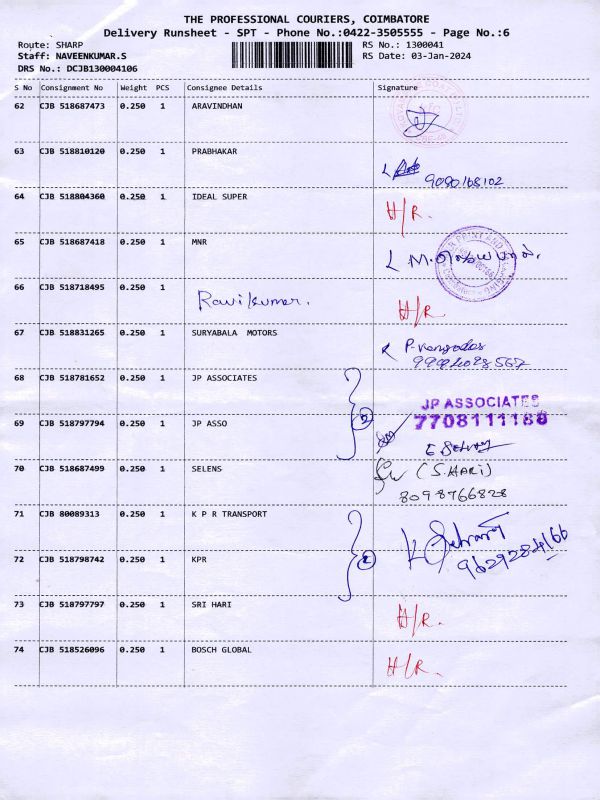 THE PROFESSIONAL COURIERS, COIMBATORE
Delivery Runsheet - SPT - Phone No.:0422-3505555 - Page No.:6
Route: SHARP RS No.: 1300041
Staff: NAVEENKUMAR.S RS Date: 03-Jan-2024
DRS No.: DCJB130004106
S No Consignment No Weight PCS Consignee Details Signature
62 CJB 518687473 0.250 1 ARAVINDHAN
63 CJB 518810120 0.250 1 PRABHAKAR
9080168102
64 CJB 518804360 0.250 1 IDEAL SUPER H/R.
65 CJB 518687418 0.250 1 MNR
66 CJB 518718495 0.250 1 Ravikumar. H/R
67 CJB 518831265 0.250 1 SURYABALA MOTORS
68 CJB 518781652 0.250 1 JP ASSOCIATES
2
JP ASSOCIATES
7708111188
69 CJB 518797794 0.250 1 JP ASSO
70 CJB 518687499 0.250 1 SELENS (S.HARI)
8098766828
71 CJB 80089313 0.250 1 K P R TRANSPORT
72 CJB 518798742 0.250 1 KPR
9629284166
73 CJB 518797797 0.250 1 SRI HARI H/R.
74 CJB 518526096 0.250 1 BOSCH GLOBAL H/R.